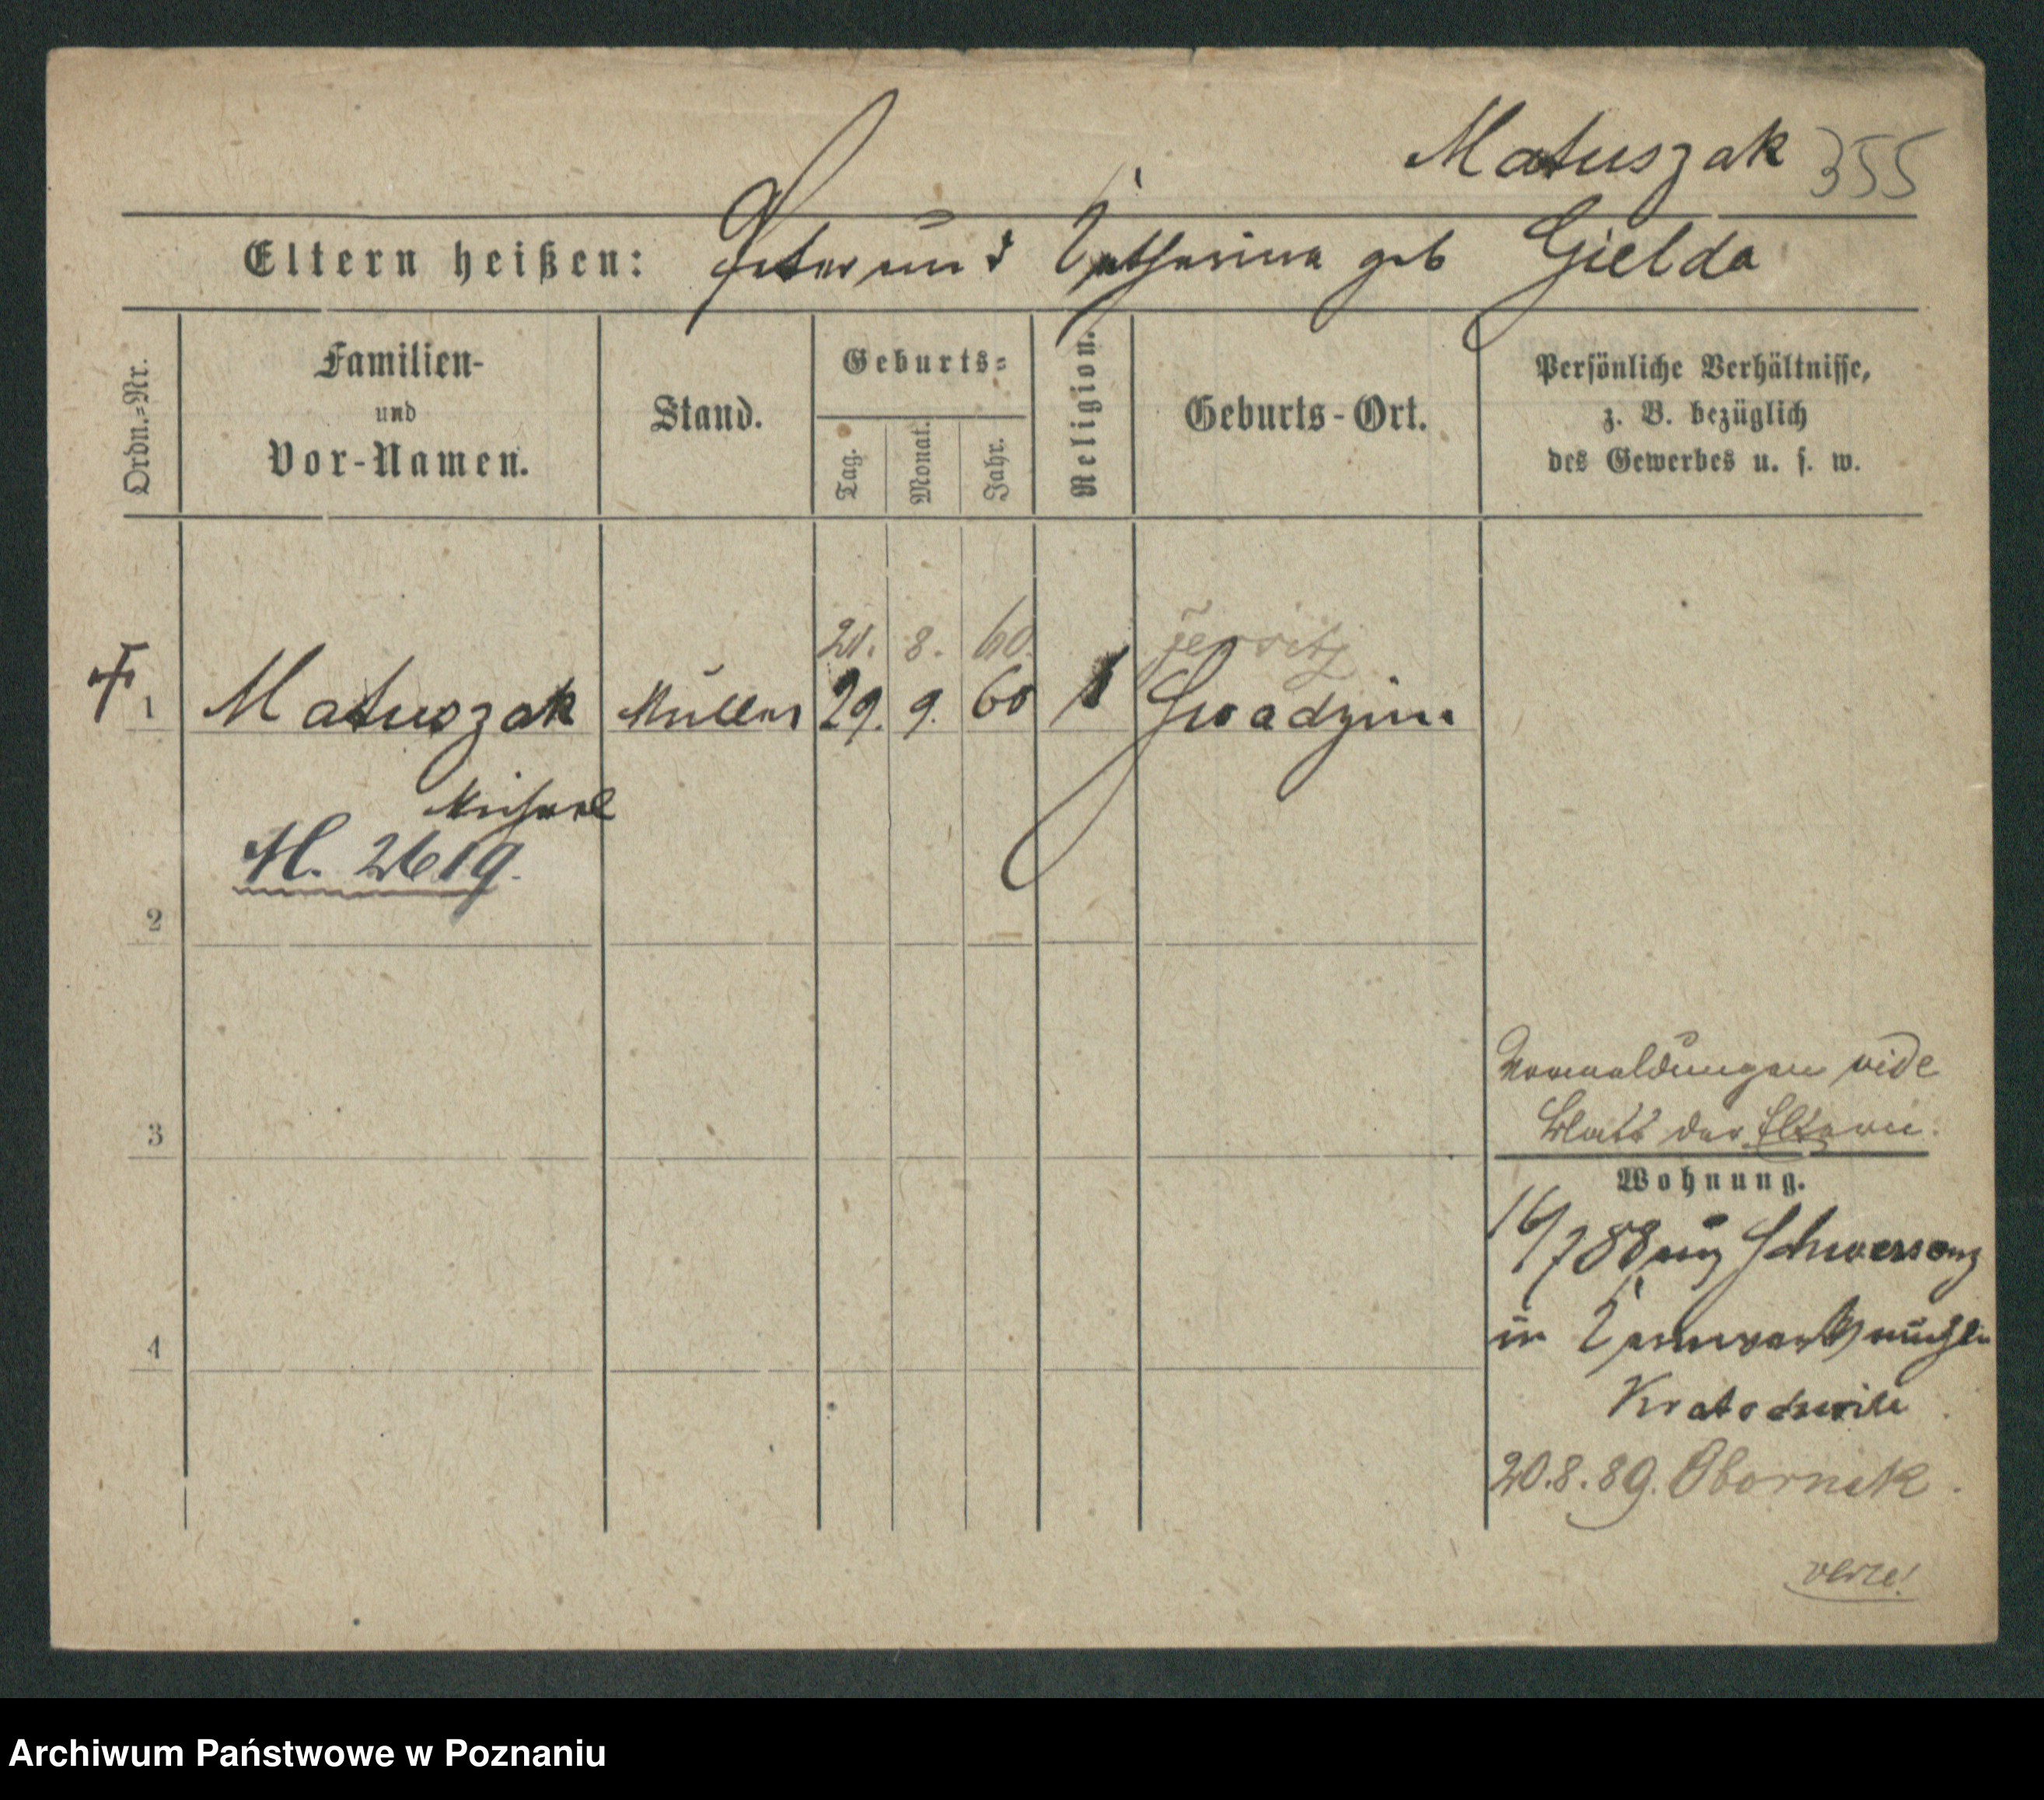 Matuszak 355
Eltern heißen: Peter und Katharina geb Gielda
Ordn.-Nr.
Familien-
und
Vor-Namen.
Stand.
Geburts-
Tag.
Monat.
Jahr.
Religion.
Geburts-Ort.
Persönliche Verhältnisse,
z. B. bezüglich
des Gewerbes u. s. w.
21. 8. 60. Jersitz
1 Matuszak Müller 29. 9. 60
Michael
M. 2619.
2
3
4
Vormeldungen vide
Blatt der Eltern.
Wohnung.
16/7 88 aus Schwersenz
in
20.8.89. Obornik.
verte!
Archiwum Państwowe w Poznaniu